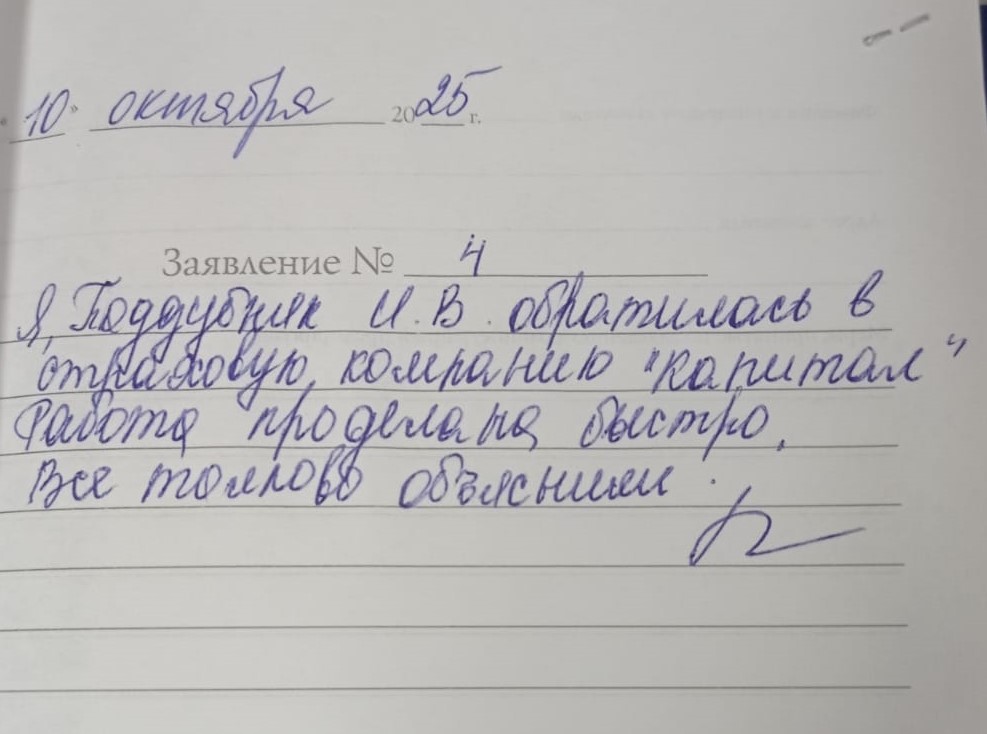 10» октября 2025 г.
Заявление № 4
Я, Поддубняк И.В. обратилась в
страховую компанию "капитал"
Работа проделана быстро.
Все толково объяснили.